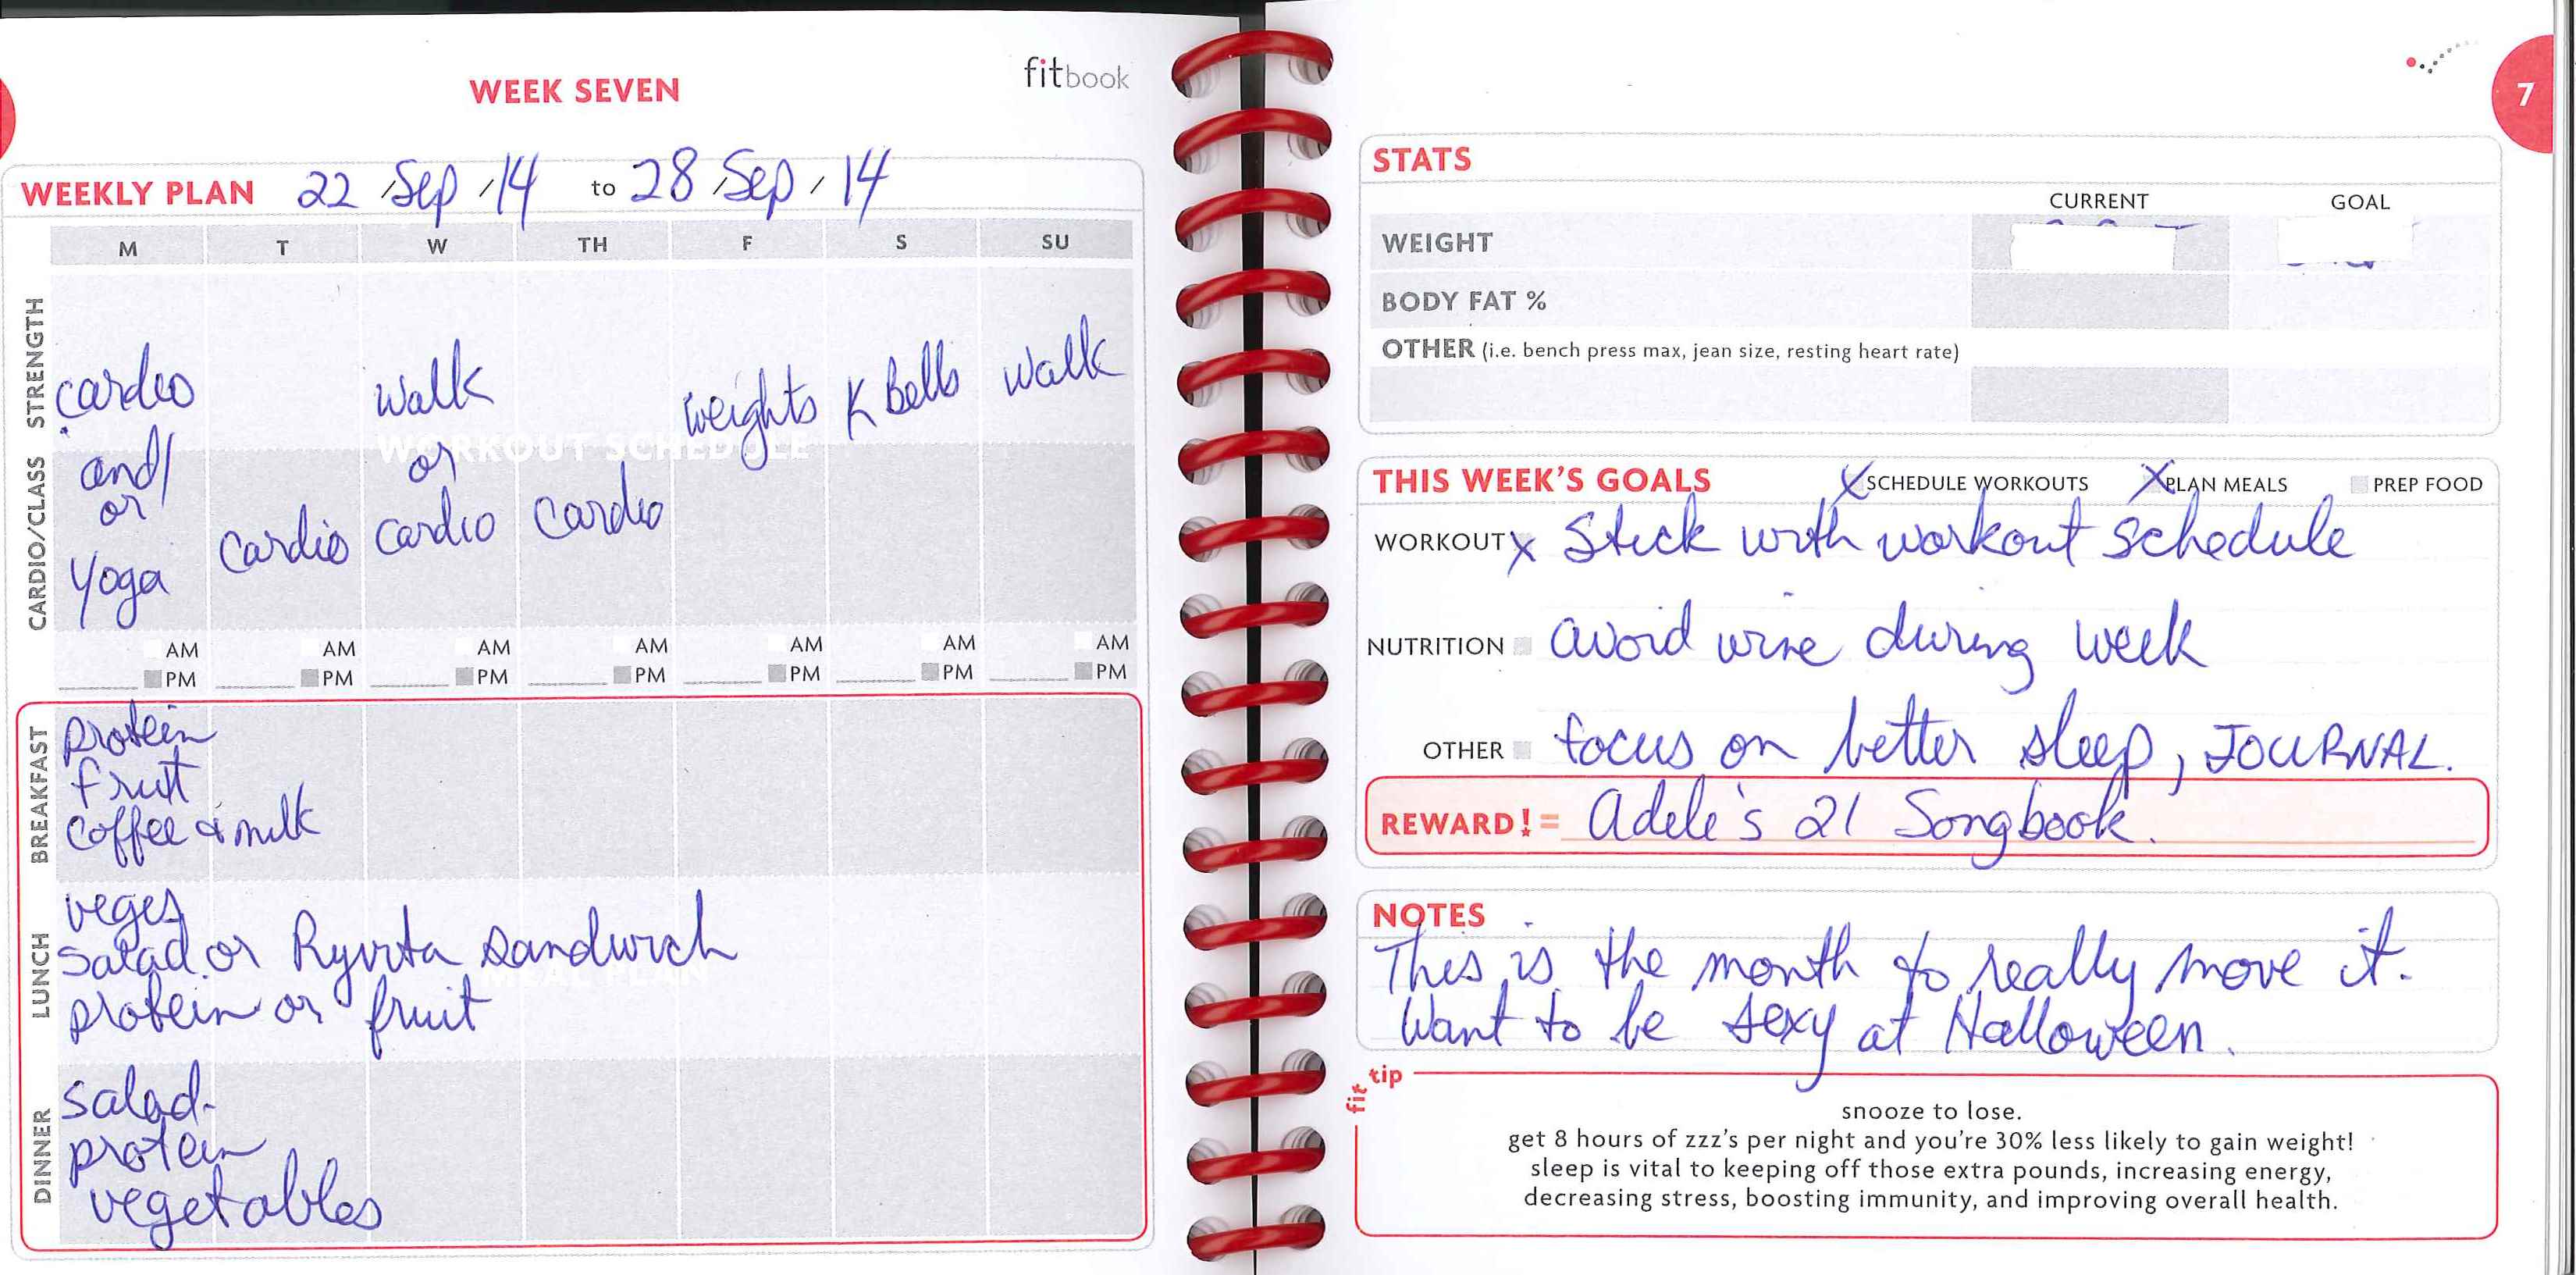 WEEK SEVEN
fitbook
WEEKLY PLAN 22 / Sep / 14 to 28 / Sep / 14
M T W TH F S SU
STRENGTH
cardio walk weights K Bells walk
WORKOUT SCHEDULE
CARDIO/CLASS
and/ or
or
Yoga cardio cardio cardio
AM AM AM AM AM AM AM
PM PM PM PM PM PM PM
BREAKFAST
protein
fruit
coffee & milk
LUNCH
veges
salad or Ryvita sandwich
MEAL PLAN
protein or fruit
DINNER
salad-
protein
vegetables
7
STATS
CURRENT GOAL
WEIGHT
BODY FAT %
OTHER (i.e. bench press max, jean size, resting heart rate)
THIS WEEK'S GOALS X SCHEDULE WORKOUTS X PLAN MEALS PREP FOOD
WORKOUT X Stick with workout schedule
NUTRITION avoid wine during week
OTHER focus on better sleep, JOURNAL.
REWARD! = Adele's 21 Songbook.
NOTES
This is the month to really move it.
Want to be sexy at Halloween.
fit tip
snooze to lose.
get 8 hours of zzz's per night and you're 30% less likely to gain weight!
sleep is vital to keeping off those extra pounds, increasing energy,
decreasing stress, boosting immunity, and improving overall health.